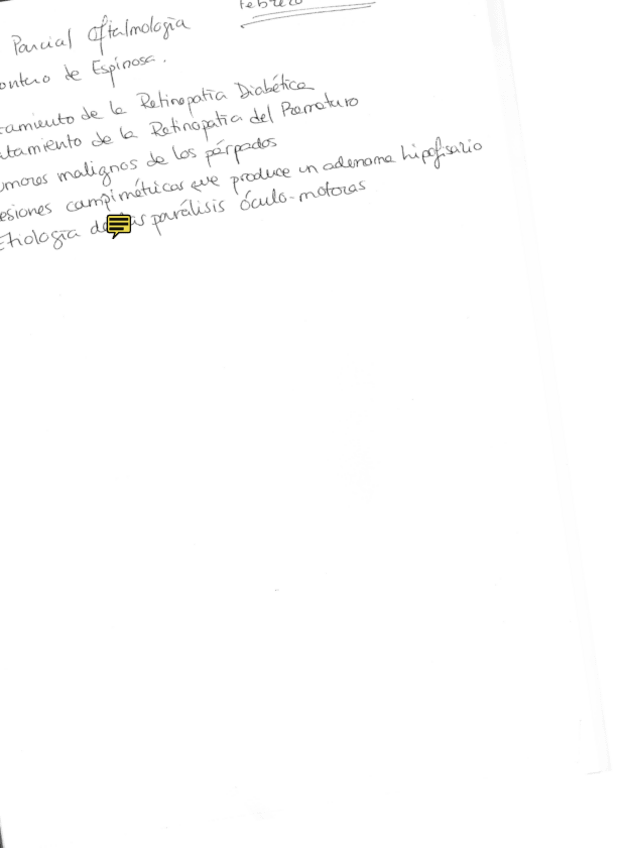 Febrero
Parcial Oftalmología
ontero de Espinosa.
tamiento de la Retinopatía Diabética
atamiento de la Retinopatía del Prematuro
umores malignos de los párpados
esiones campimétricas que produce un adenoma hipofisario
Etiología de las parálisis óculo-motoras